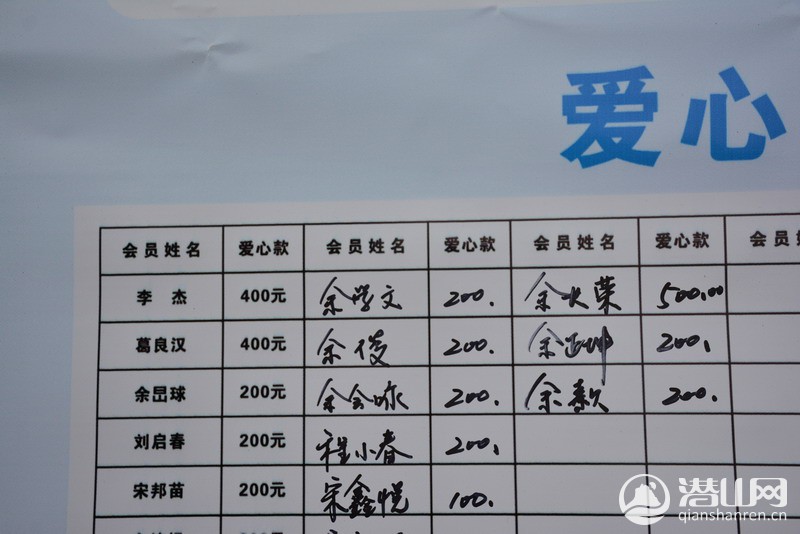 爱心
会员姓名 爱心款 会员姓名 爱心款 会员姓名 爱心款 会员
李 杰 400元 余学文 200. 余大荣 500.00
葛良汉 400元 余俊 200. 余正坤 200.
余旵球 200元 余会咏 200. 余 200.
刘启春 200元 程小春 200.
宋邦苗 200元 宋鑫悦 100.
潜山网
qianshanren.cn